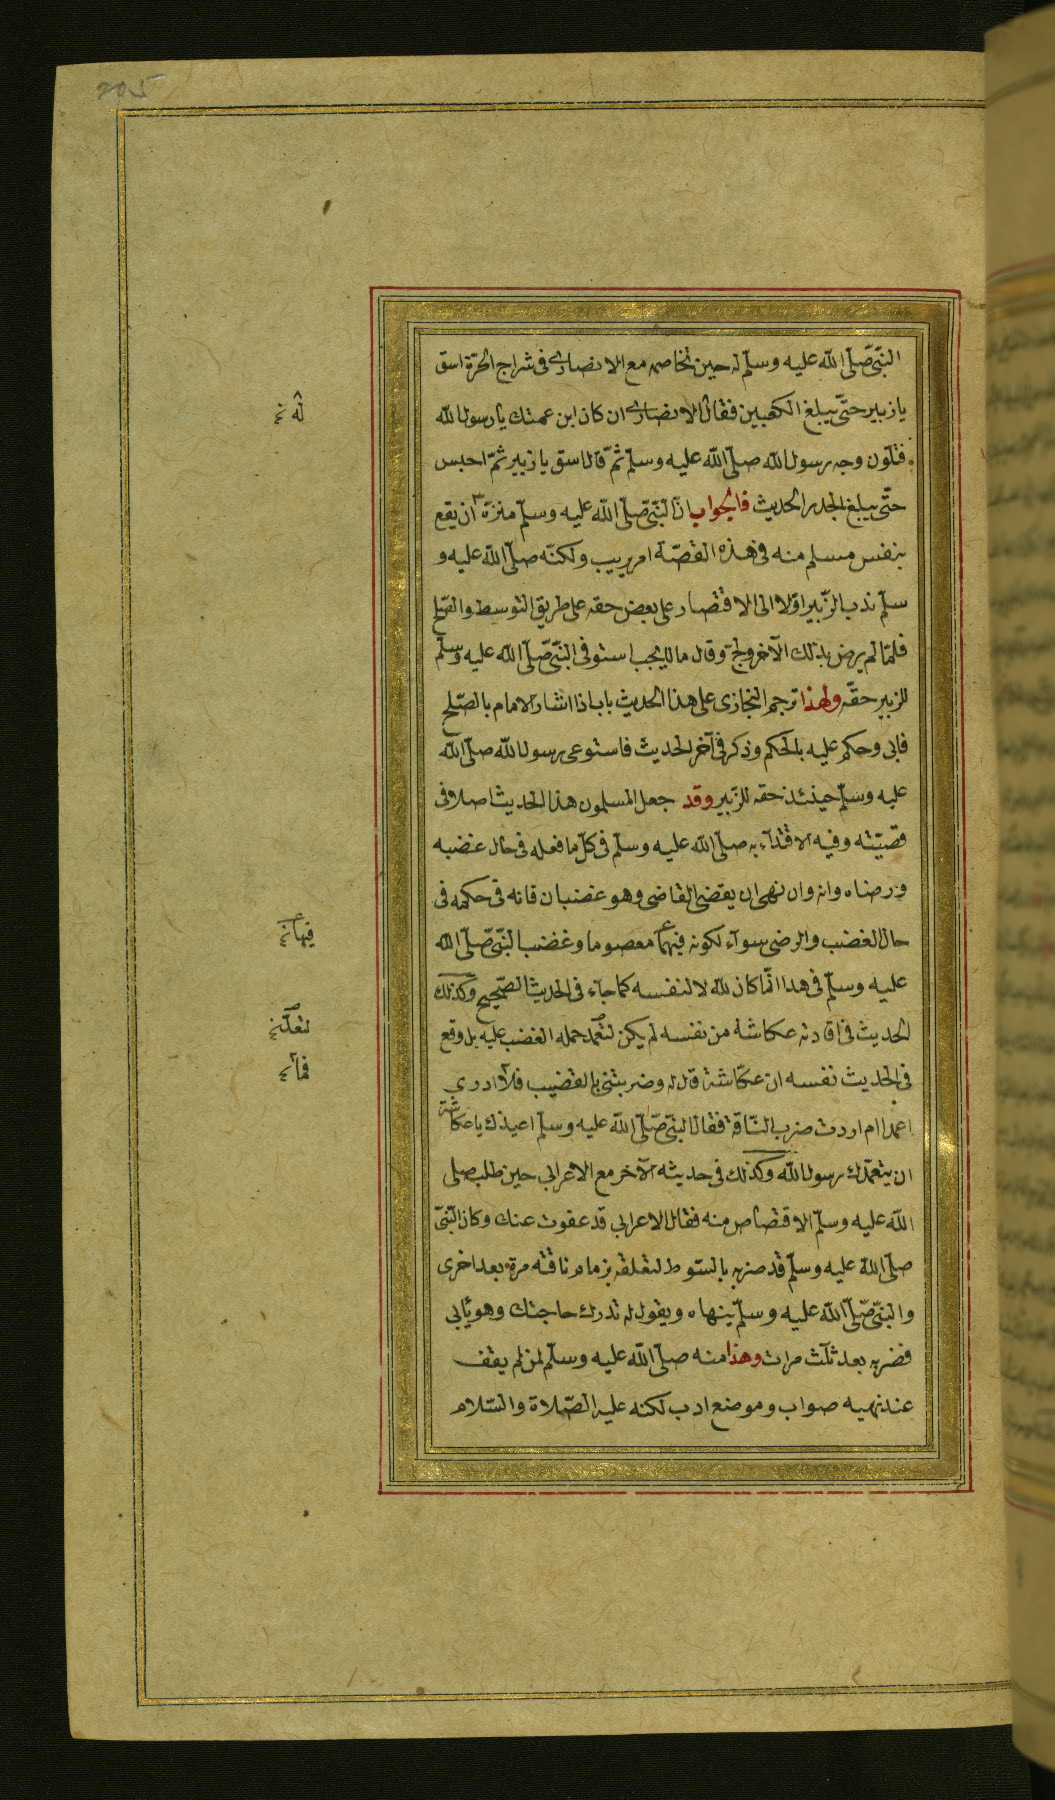 205
النبّى صلّى الله عليه وسلّم له حين تخاصمه مع الانصارى فى شراج الحرّة اسق
يا زبير حتّى يبلغ الكعبين فقال الانصارى ان كان ابن عمتك يا رسول الله
فتلّون وجه رسول الله صلّى الله عليه وسلّم ثمّ قال اسق يا زبير ثمّ احبس
حتّى يبلغ الجدر الحديث فالجواب انّ النبّى صلّى الله عليه وسلّم منزّه ان يقع
بنفس مسلم منه فى هذه القصّة امر يريب ولكنّه صلّى الله عليه و
سلّم ندب الزّبير اوّلا الى الاقتصار على بعض حقه على طريق التوسط والصّلح
فلمّا لم يرض بذلك الآخر ولجّ وقال ما لا يجب استوفى النبّى صلّى الله عليه وسلّم
للزبير حقّه ولهذا ترجم البخارى على هذا الحديث باب اذا اشار الامام بالصّلح
فابى وحكم عليه بالحكم وذكر فى آخر الحديث فاستوعى رسول الله صلّى الله
عليه وسلّم حينئذ حقه للزّبير وقد جعل المسلمون هذا الحديث اصلا فى
قضيّته وفيه الاقتدآء به صلّى الله عليه وسلّم فى كلّ ما فعله فى حال غضبه
ورضاه وانه وان نهى ان يقضى القاضى وهو غضبان فانه فى حكمه فى
حال الغضب والرضى سوآء لكونه فيهما معصوما وغضب النبّى صلّى الله
عليه وسلّم فى هذا انّما كان لله لا لنفسه كما جآء فى الحديث الصّحيح وكذلك
الحديث فى اقادته عكاشة من نفسه لم يكن لتعمد حمله الغضب عليه بل وقع
فى الحديث نفسه ان عكّاشة قال له وضربتنى بالقضيب فلا ادرى
اعمدا ام اردت ضرب النّاقة فقال النبّى صلّى الله عليه وسلّم اعيذك يا عكاشة
ان يتعمّدك رسول الله وكذلك فى حديثه الآخر مع الاعرابى حين طلب صلى
الله عليه وسلّم الاقتصاص منه فقال الاعرابى قد عفوت عنك وكان النبّى
صلّى الله عليه وسلّم قد ضربه بالسّوط لتعلقه بزمام ناقته مرة بعد اخرى
والنبّى صلّى الله عليه وسلّم ينهاه ويقول له تدرك حاجتك وهو يأبى
فضربه بعد ثلث مرات وهذا منه صلّى الله عليه وسلّم لمن لم يقف
عند نهيه صواب وموضع ادب لكنه عليه الصّلاة والسّلام
له
فيها
فما